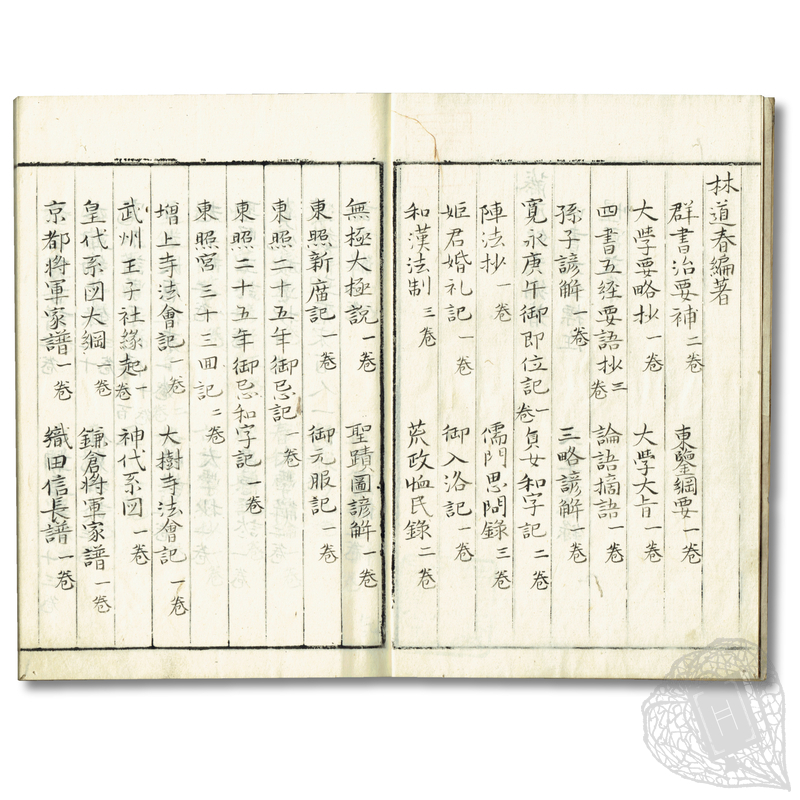 林道春編著
群書治要補 二卷 東鑒綱要 一卷
大學要略抄 一卷 大學大旨 一卷
四書五経要語抄 三卷 論語摘語 一卷
孫子諺解 一卷 三略諺解 一卷
寛永庚午御即位記 一卷 貞女和字記 二卷
陣法抄 一卷 儒門思問錄 三卷
姫君婚礼記 一卷 御入洛記 一卷
和漢法制 三卷 荒政恤民錄 二卷
無極大極説 一卷 聖蹟圖諺解 一卷
東照新庿記 一卷 御元服記 一卷
東照二十五年御忌記 一卷
東照二十五年御忌和字記 一卷
東照宮三十三回記 二卷
増上寺法會記 一卷 大樹寺法會記 一卷
武州王子社緣起 一卷 神代系図 一卷
皇代系図大綱 一卷 鎌倉將軍家譜 一卷
京都將軍家譜 一卷 織田信長譜 一卷
H